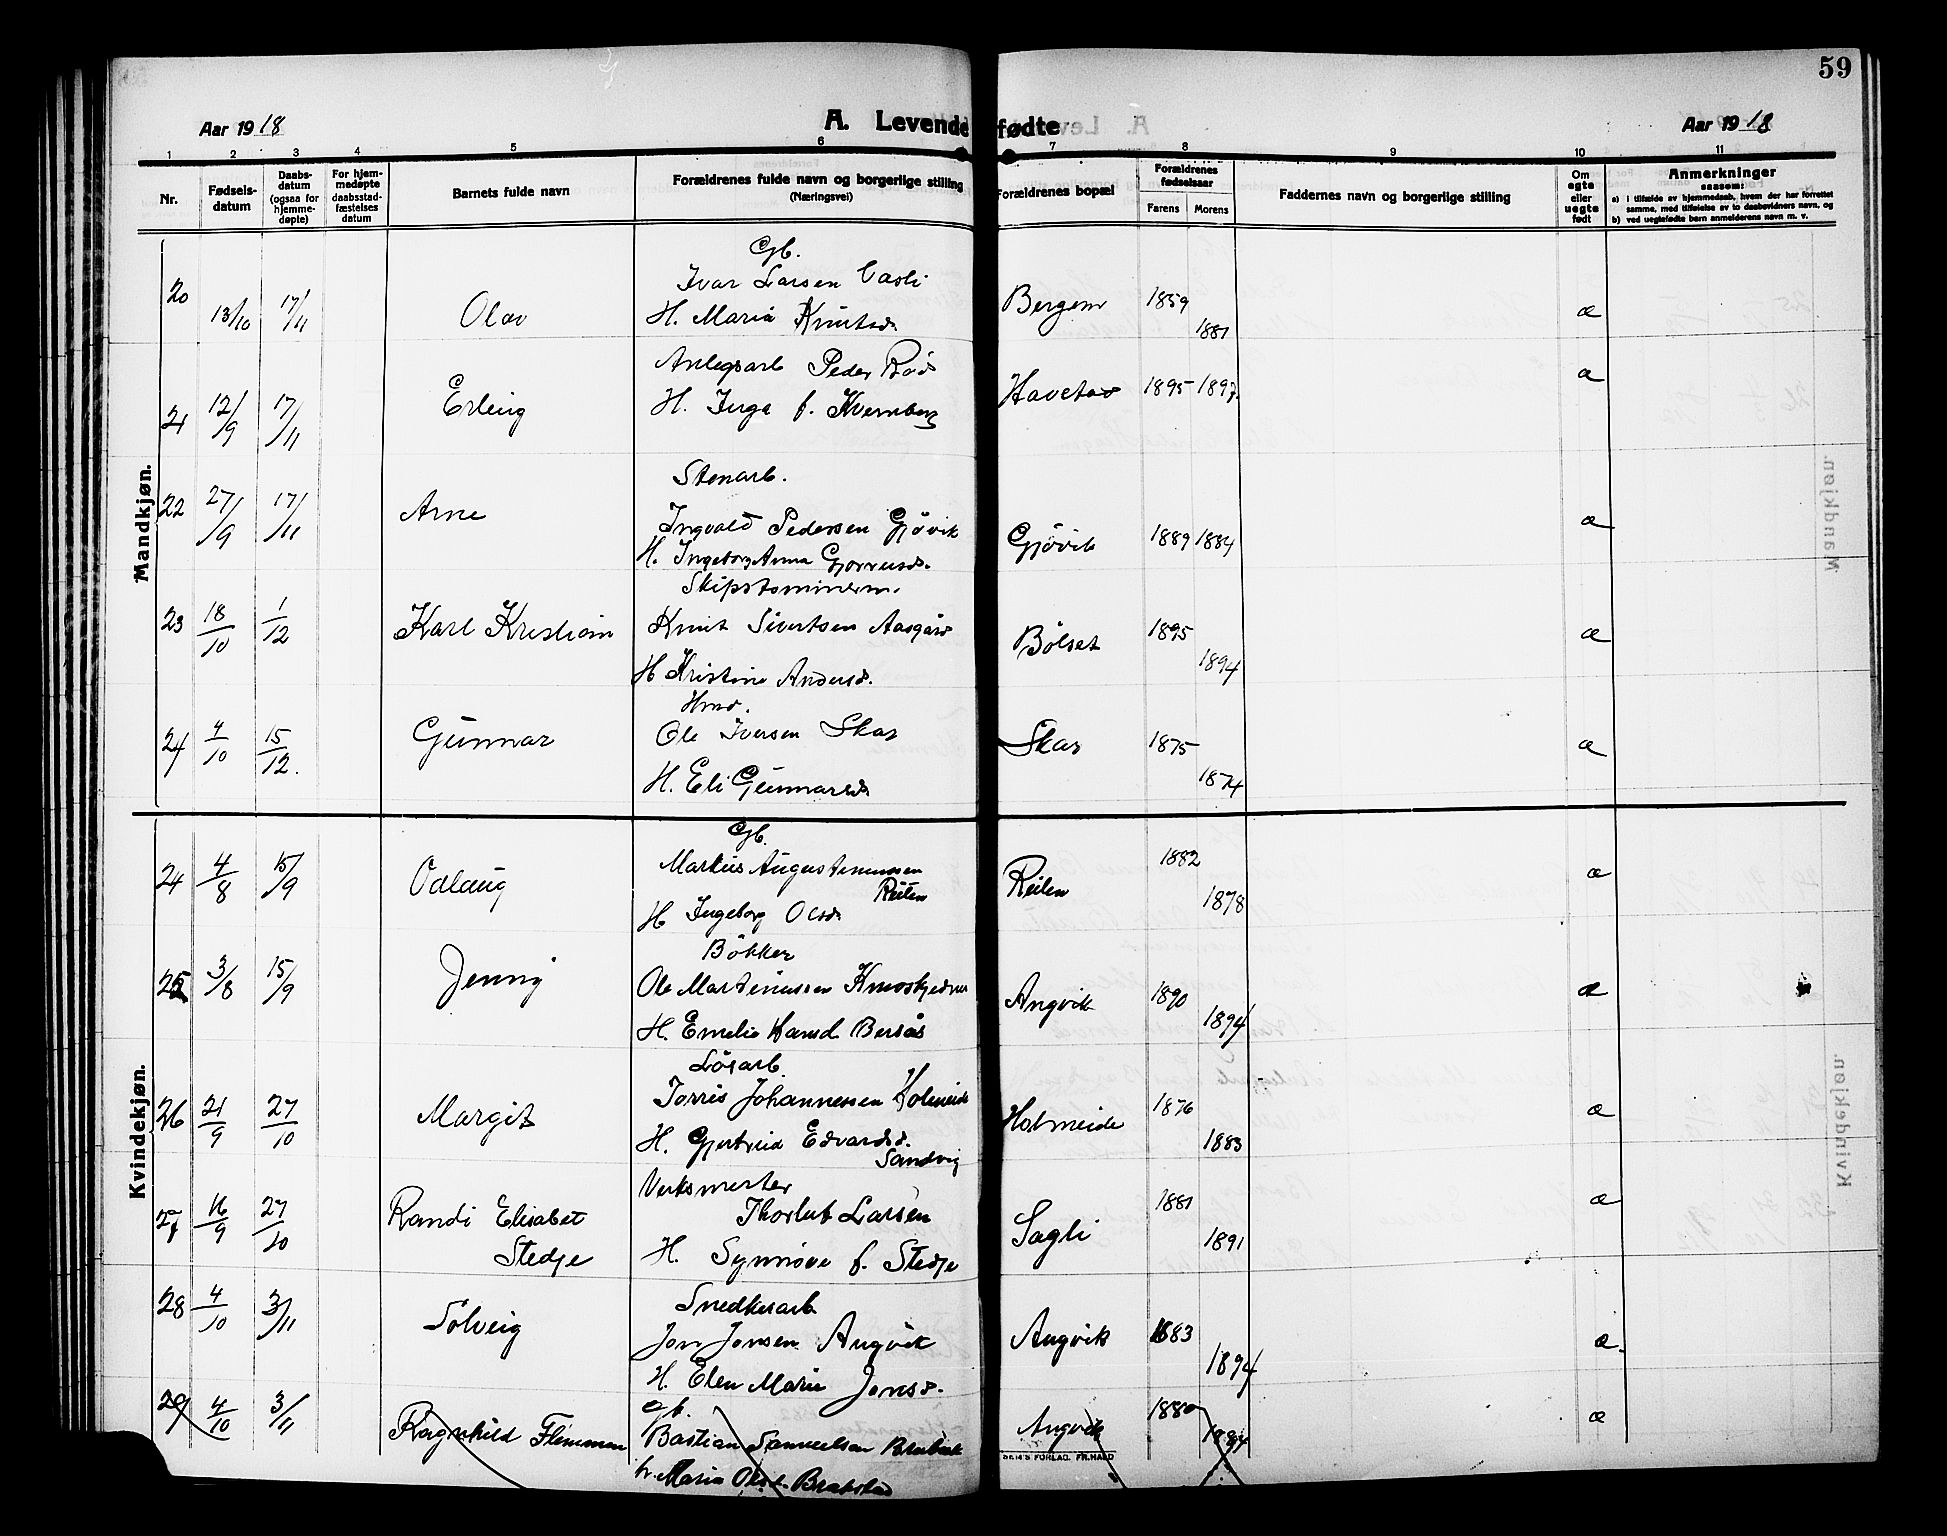 59
Aar 1918
A. Levende fødte
Aar 1918
1 2 3 4 5 6 7 8 9 10 11
Nr.
Fødsels-
datum
Daabs-
datum
(ogsaa for
hjemme-
døpte)
For hjem-
medøpte
daabsstad-
fæstelses
datum
Barnets fulde navn
Forældrenes fulde navn og borgerlige stilling
(Næringsvei)
Forældrenes bopæl
Forældrenes
fødselsaar
Farens Morens
Faddernes navn og borgerlige stilling
Om
egte
eller
uegte
født
Anmerkninger
saasom:
a) i tilfælde av hjemmedaab, hvem der har forrettet
samme, med tilføielse av to daabsvidners navn, og
b) ved uegtefødte børn anmelderens navn m. v.
Mandkjøn.
Gb.
Ivar Larsen Vasli
20 13/10 17/11 Olav H. Maria Knutsd. Bergem 1859 1881 æ
Anlegsarb Peder Rød
21 12/9 17/11 Erling H. Inga f. Kvernberg 1895 1897 æ
Stenarb.
22 27/9 17/11 Arne Ingvald Pedersen Gjøvik Gjøvik 1889 1884 æ
H. Ingeborg Anna
Skipstømmerm.
23 18/10 1/12 Karl Kristian Knut Sivertsen Aasgård Bølset 1895 1894 æ
H Kristine Andersd.
Hmd.
24 4/10 15/12. Gunnar Ole Iversen Skar Skar 1875 1874 æ
H. Eli Gunnarsd
Kvindekjøn.
Gb.
24 4/8 15/9 Odlaug Markus Augustinussen Reiten Reiten 1882 1878 æ
H Ingeborg Olsd
Bøkker
25 3/8 15/9 Jenny Ole Martinussen Angvik 1890 1894 æ
H. Emelie Bersås
Løsarb.
26 21/9 27/10 Margit Torris Johannessen Holmeide Holmeide 1876 1883 æ
H. Gjertrud Edvardsd.
Sandvig
Verksmester
27 16/9 27/10 Randi Elisabet Thorleif Larsen Sagli 1881 1891 æ
Stedje H. Synnøve f. Stedje
Snedkerarb
28 4/10 3/11 Solveig Jon Jonsen Angvik Angvik 1883 1894 æ.
H. Elen Marie Jonsd.
29 4/10 3/11 Ragnhild Flemmen Bastian Samuelsen Angvik 1880 1884 æ
h. Maria Olsd. Brabstad
FORLAG. FR. HALD